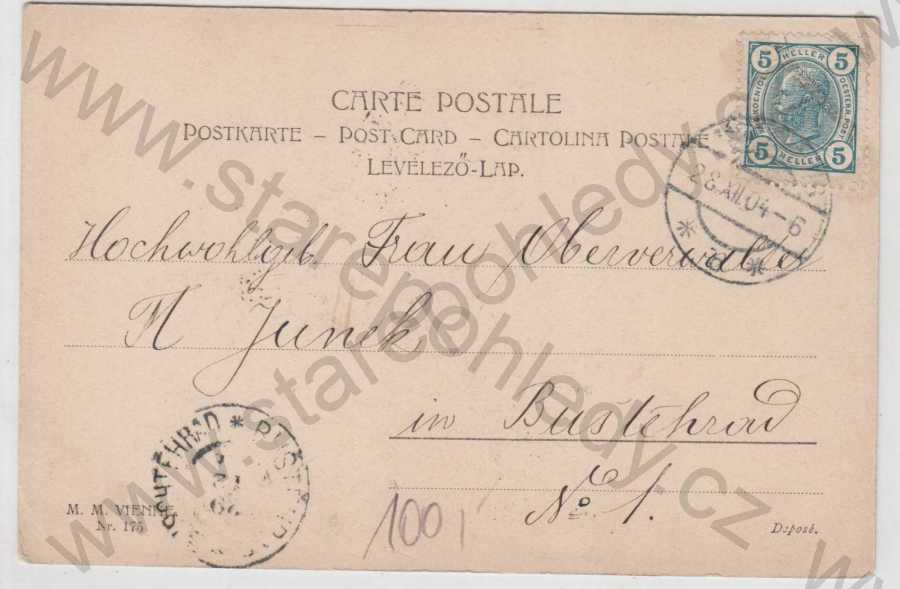 CARTE POSTALE
POSTKARTE – POST CARD – CARTOLINA POSTALE
LEVELEZŐ-LAP.
5 HELLER 5
5 HELLER 5
28.XII.04–6
Hochwohlgeb. Frau Oberverwalter
Junek
in Bustehrad
No. 1.
BUŠTĚHRAD
M. M. VIENNE
Nr. 175
100,
Deposé.
www.starepohledy.cz